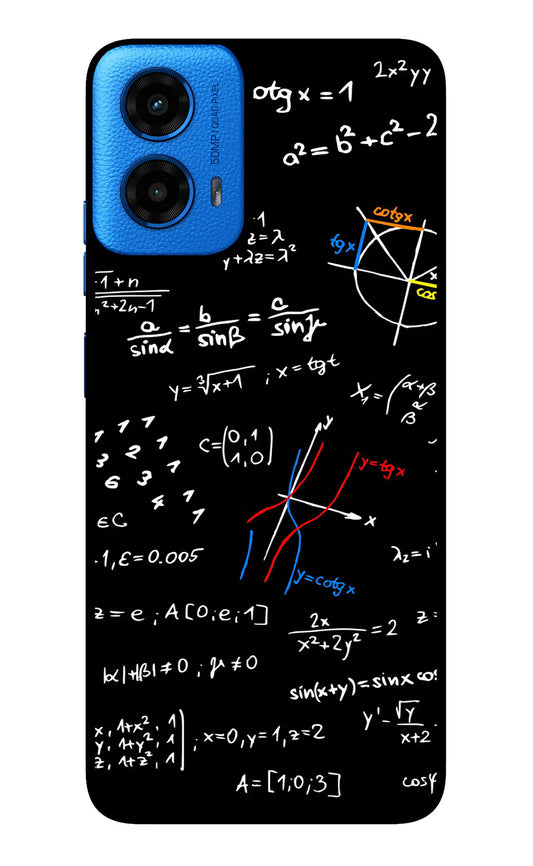 50MP QUAD PIXEL
otg x = 1
2x²yy
a² = b² + c² - 2
cotgx
tgx
x
cos
·1
z = λ
y + λz = λ²
·1 + n
n² + 2n - 1
a/sinα = b/sinβ = c/sinγ
y = ∛(x+1) ; x = tgt
X₁ = (α+β
β^α
1 1 1
3 2 1
6 3 1
4 1
1
C = (0, 1
1, 0)
y
y = tgx
x
y = cotgx
εC
·1, ε = 0.005
λ₂ = i
z = e ; A[0; e; 1]
2x/(x² + 2y²) = 2
z =
|α| + |β| ≠ 0 ; γ ≠ 0
sin(x+y) = sinx cos
x, 1+x², 1
y, 1+y², 1
z, 1+z², 1
; x=0, y=1, z=2
y' - √y/(x+2
A = [1; 0; 3]
cosφ